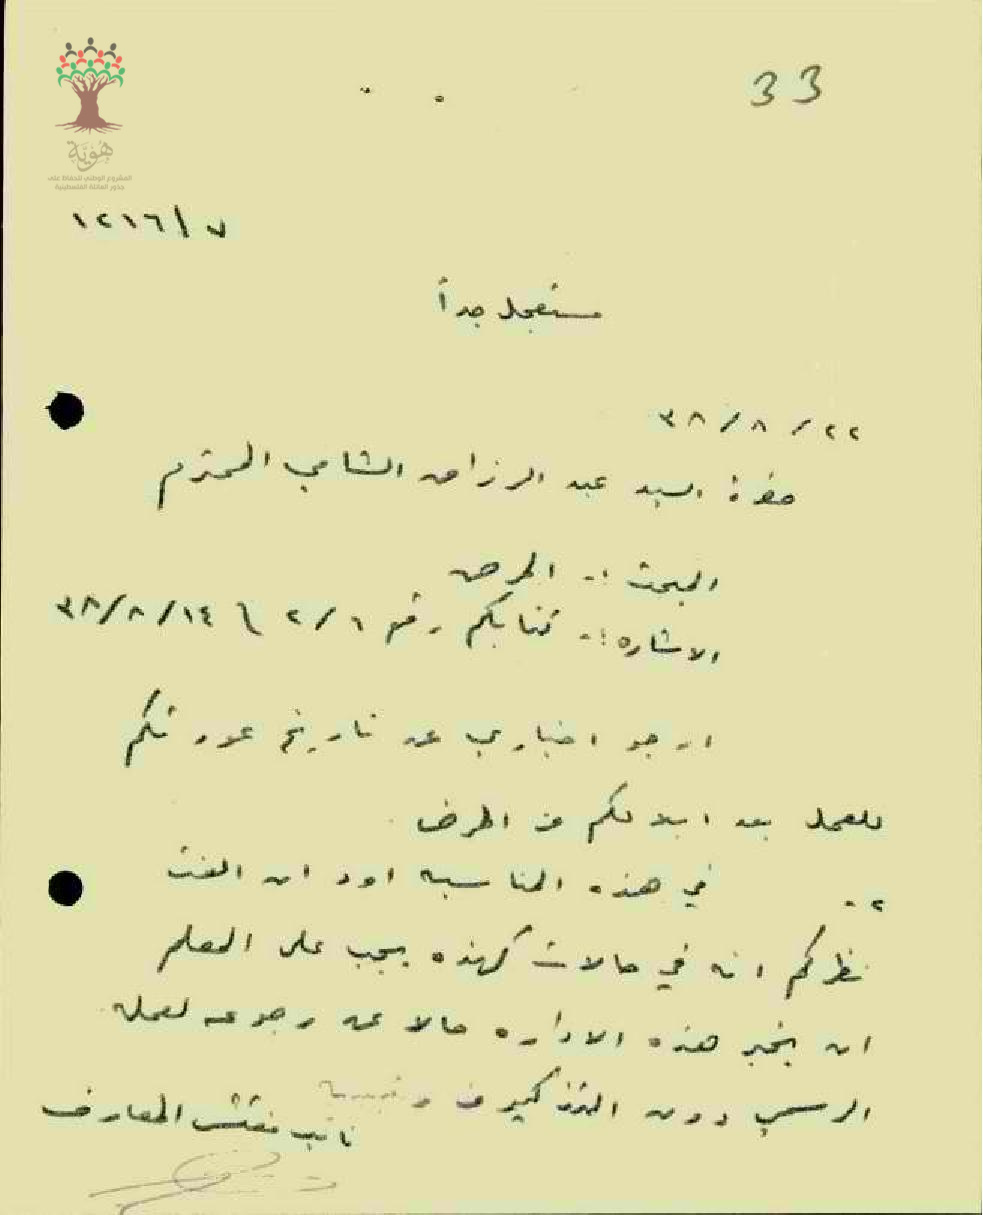 33
هوية
المشروع الوطني للحفاظ على
جذور العائلة الفلسطينية
٧/١٢١٦
مستعجل جداً
٢٢/٨/٣٨
حضرة السيد عبد الرزاق الشامي المحترم
المبحث :- المرض
الاشاره :- كتابكم رقم ٢/١ \ ١٤/٨/٣٨
ارجو اخباري عن تاريخ عودتكم
للعمل بعد ابلالكم من المرض
٢- في هذه المناسبه اود ان الفت
نظركم انه في حالات كهذه يجب على المعلم
ان يخبر هذه الاداره حالا عن رجوعه لعمله
الرسمي دون
نائب مفتش المعارف